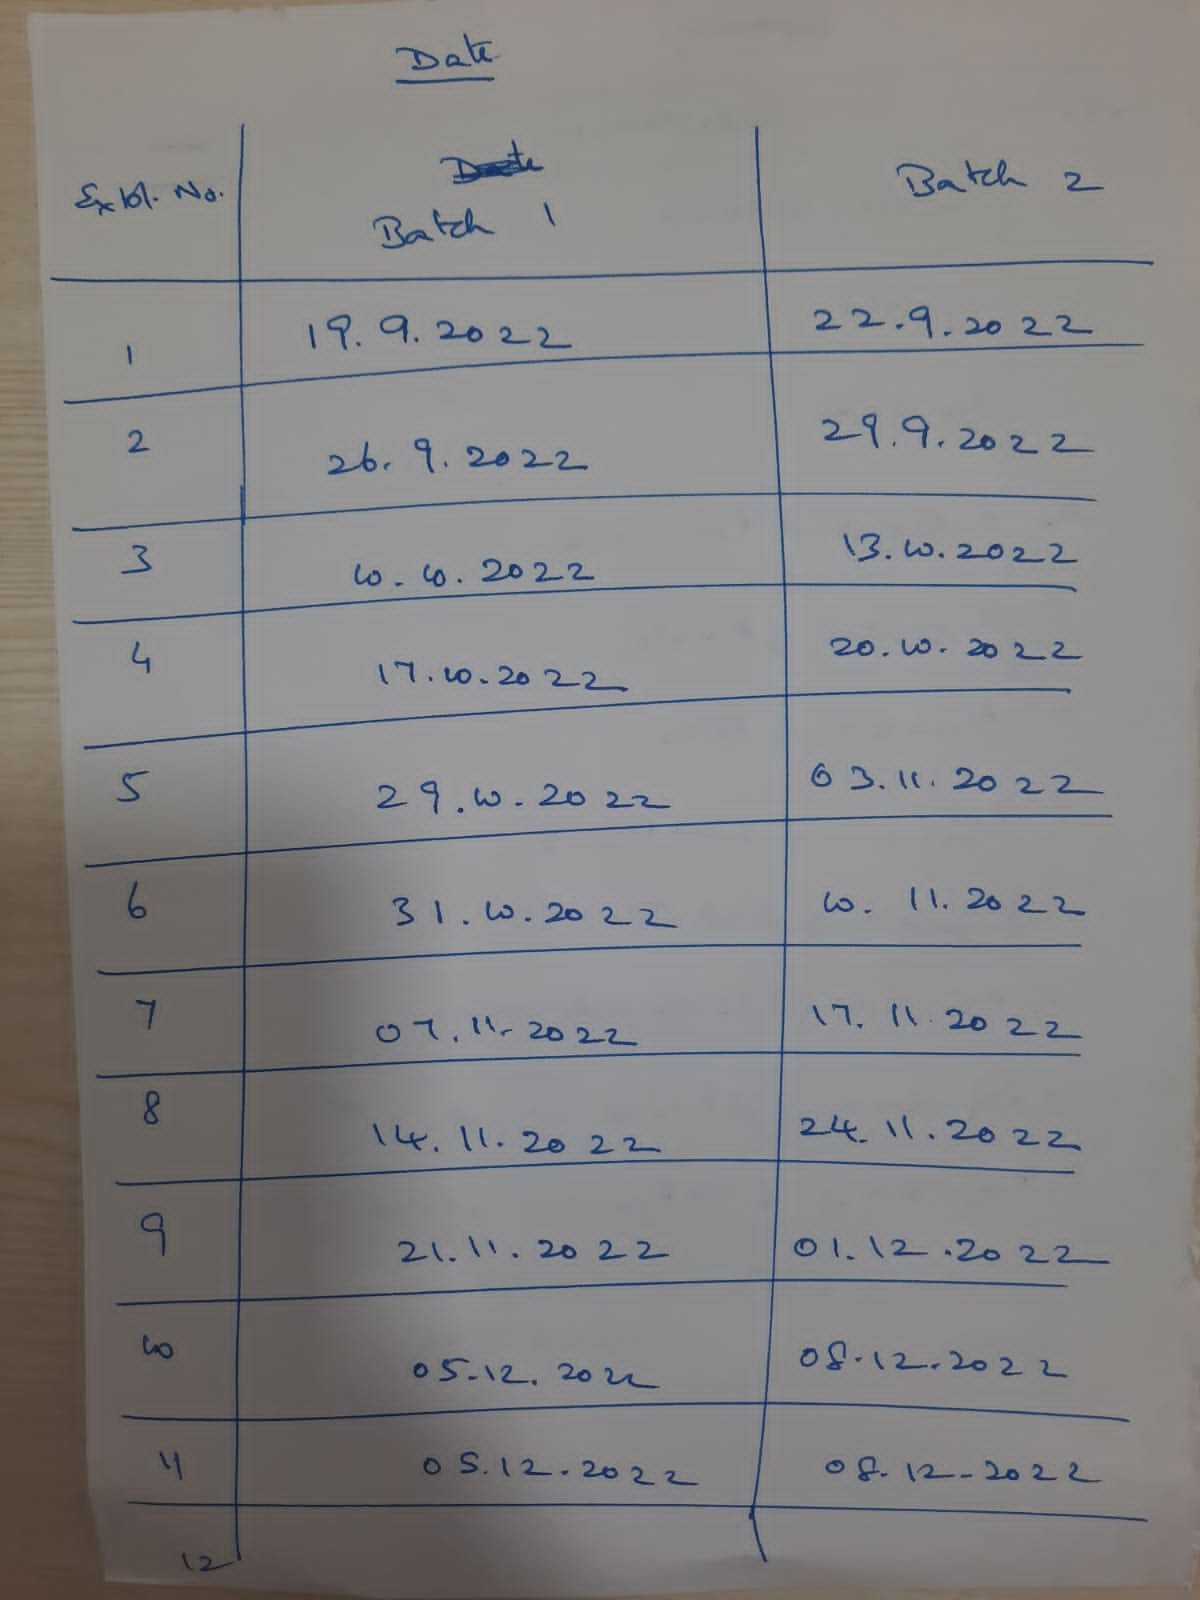 Date
Expt. No.
Batch 1
Batch 2
1 19.9.2022 22.9.2022
2 26.9.2022 29.9.2022
3 10.10.2022 13.10.2022
4 17.10.2022 20.10.2022
5 29.10.2022 03.11.2022
6 31.10.2022 10.11.2022
7 07.11.2022 17.11.2022
8 14.11.2022 24.11.2022
9 21.11.2022 01.12.2022
10 05.12.2022 08.12.2022
11 05.12.2022 08.12.2022
12